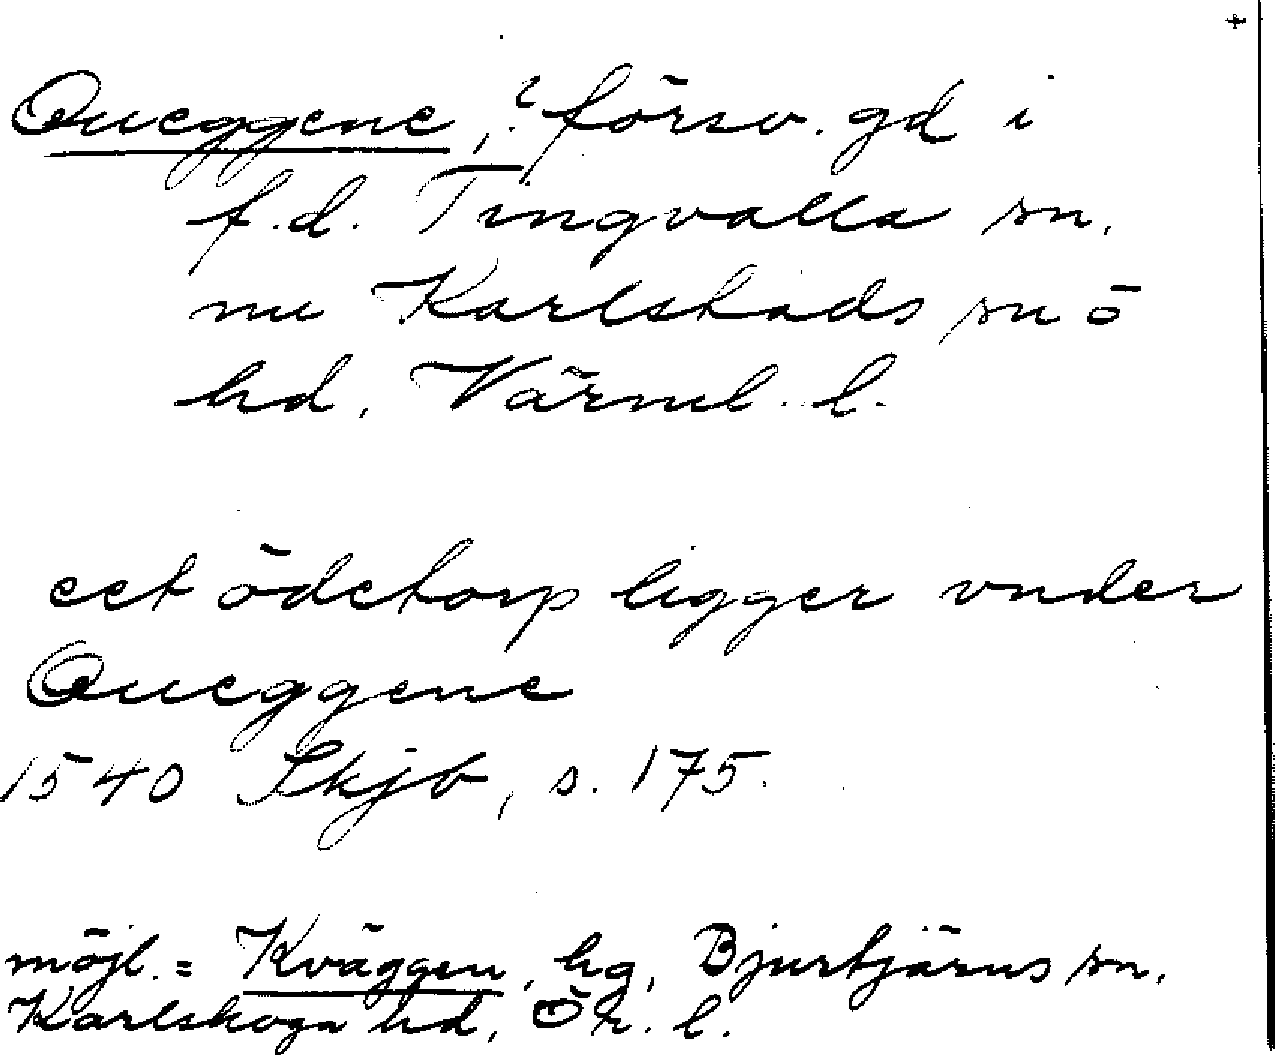 +
Queggene, ? försv. gd i
f.d. Tingvalla sn.
nu Karlstads sn o
hd. Värml. l.
eet ödetorp ligger vnder
Queggene
1540 Skjb, s. 175.
möjl. = Kväggen, hg, Bjurtjärns sn.
Karlskoga hd, Ör. l.